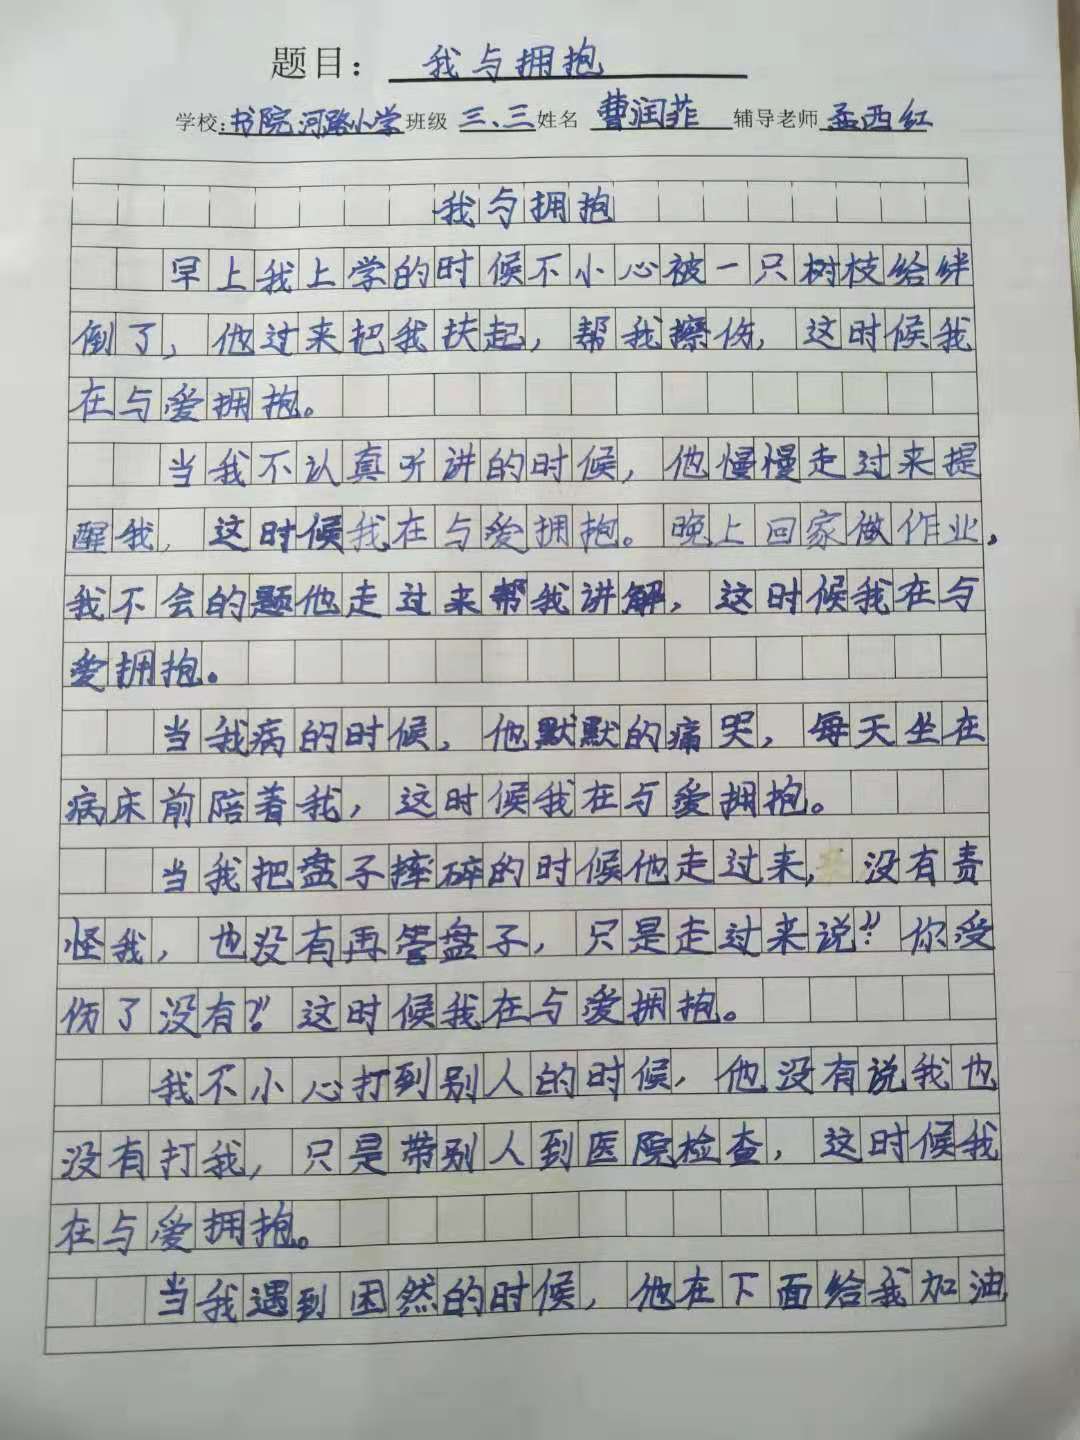 题目：我与拥抱
学校：书院河路小学班级三、三姓名曹润菲辅导老师孟西红
我与拥抱
早上我上学的时候不小心被一只树枝给绊
倒了，他过来把我扶起，帮我擦伤，这时候我
在与爱拥抱。
当我不认真听讲的时候，他慢慢走过来提
醒我，这时候我在与爱拥抱。晚上回家做作业，
我不会的题他走过来帮我讲解，这时候我在与
爱拥抱。
当我病的时候，他默默的痛哭，每天坐在
病床前陪着我，这时候我在与爱拥抱。
当我把盘子摔碎的时候他走过来，没有责
怪我，也没有再管盘子，只是走过来说“你受
伤了没有？”这时候我在与爱拥抱。
我不小心打到别人的时候，他没有说我也
没有打我，只是带别人到医院检查，这时候我
在与爱拥抱。
当我遇到困然的时候，他在下面给我加油，